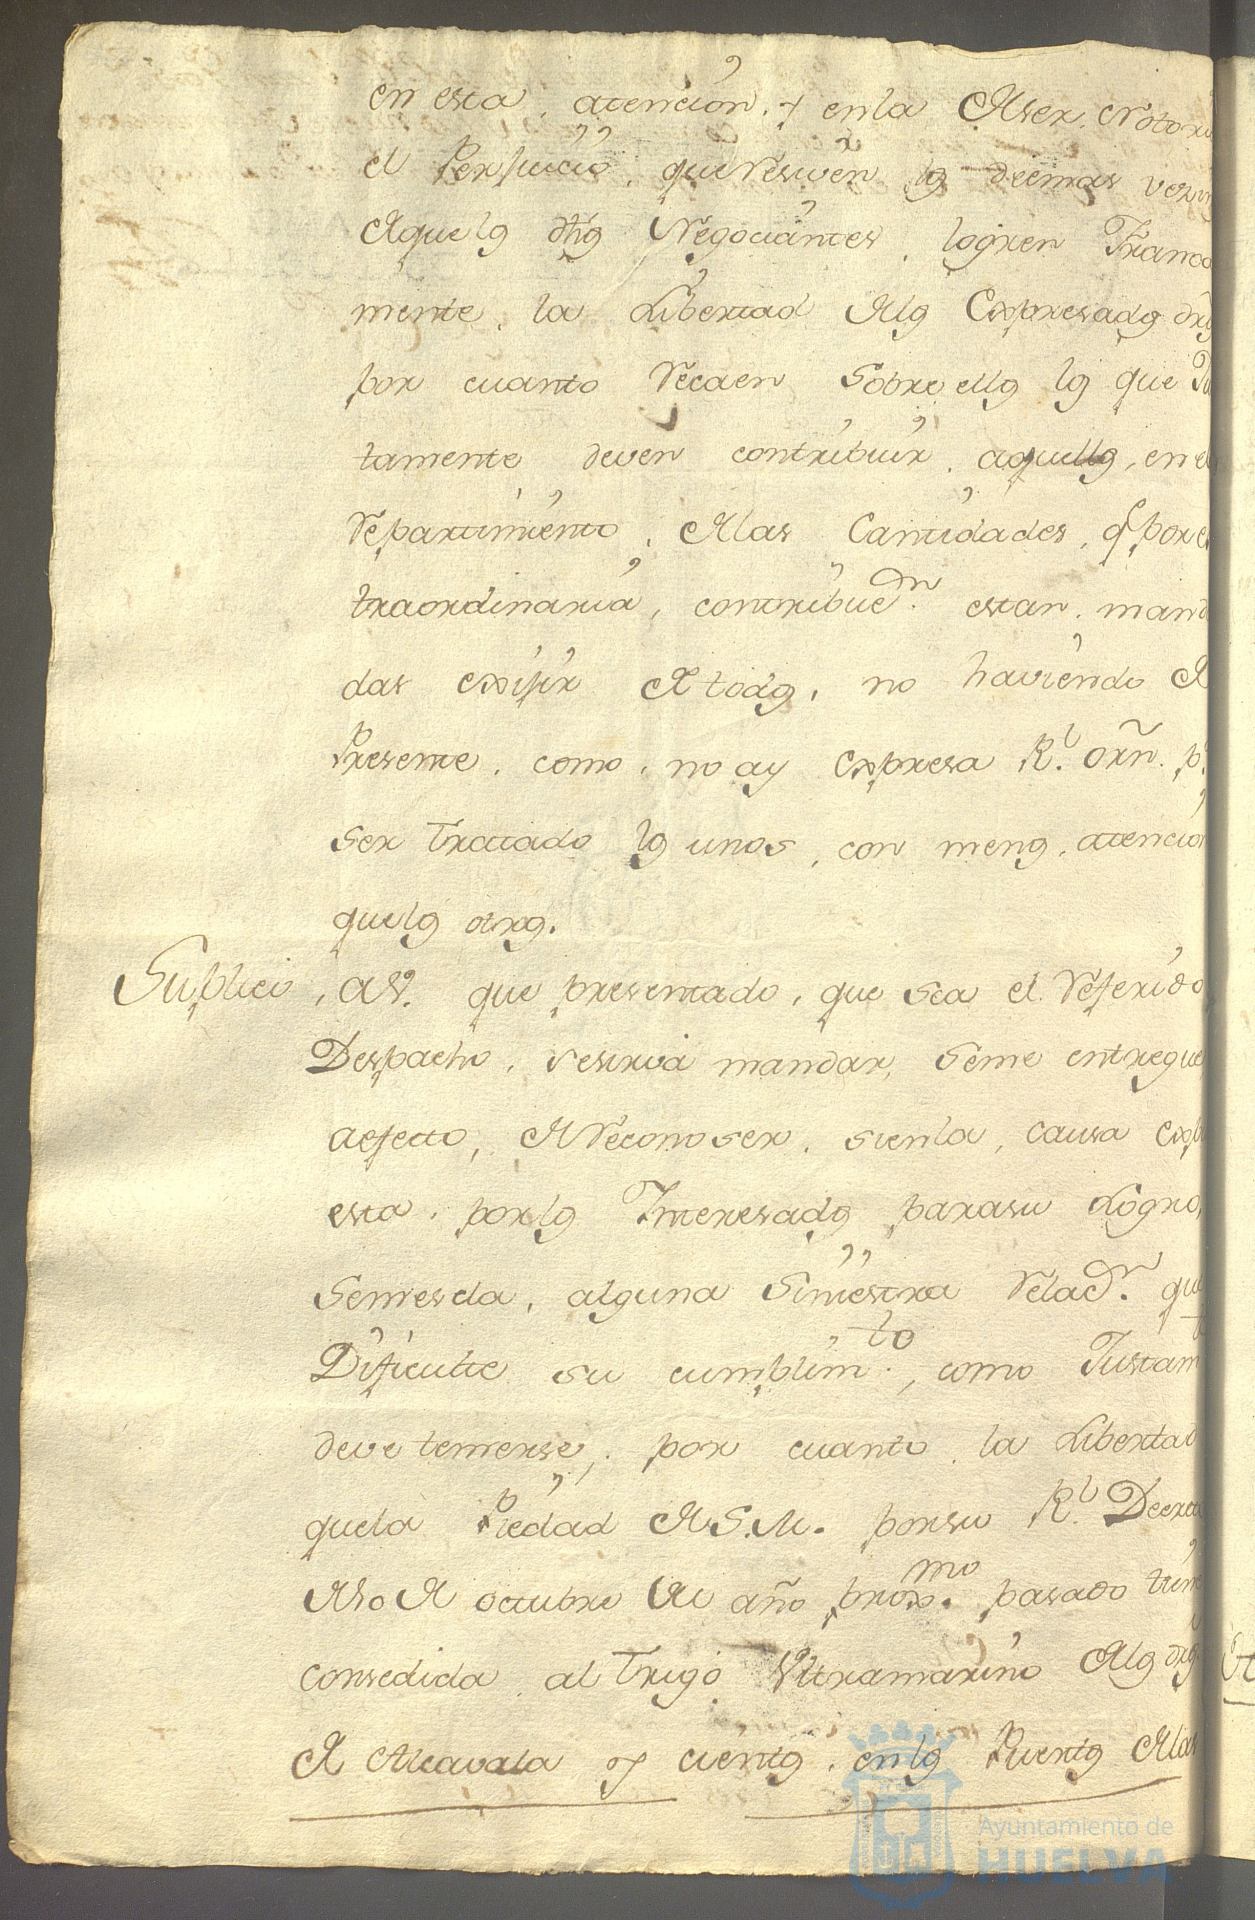 en esta atencion. y enla de ser Notori
el Perjuicio, que resiven los demas vezin
de aquellos dhos Negociantes, logren Franca
mente, la Libertad de los Expresados dros
por cuanto recaen sobre ellos los que Ju
tamente deven contribuir, aquellos, en el
repartimiento, de las Cantidades, q por ex
traordinaria, contribucn. estan. manda
das exijir de todos, no haviendo de
Presente. como, no ay expresa Rl. orn. pa.
ser tratado los unos, con menos, atencion
quelos otros.
Suplico, a V. que presentado, que sea el referido
Despacho, se sirva mandar, seme entregue
aefecto, de reconoser, sienla, causa expu
esta, por los Interesados parasu Logro,
semescla, alguna siniestra relacn. que
Dificulte su cumplimto., como Justam
deve temerse, por cuanto la Libertad
quela Piedad de S.M. porsu Rl. Decreto
de 8 de octubre del año proxmo. pasado tiene
consedida al trigo Vltramarino de los dros
de Alcavala y cientos, enlos Puertos de las
Ayuntamiento de
HUELVA